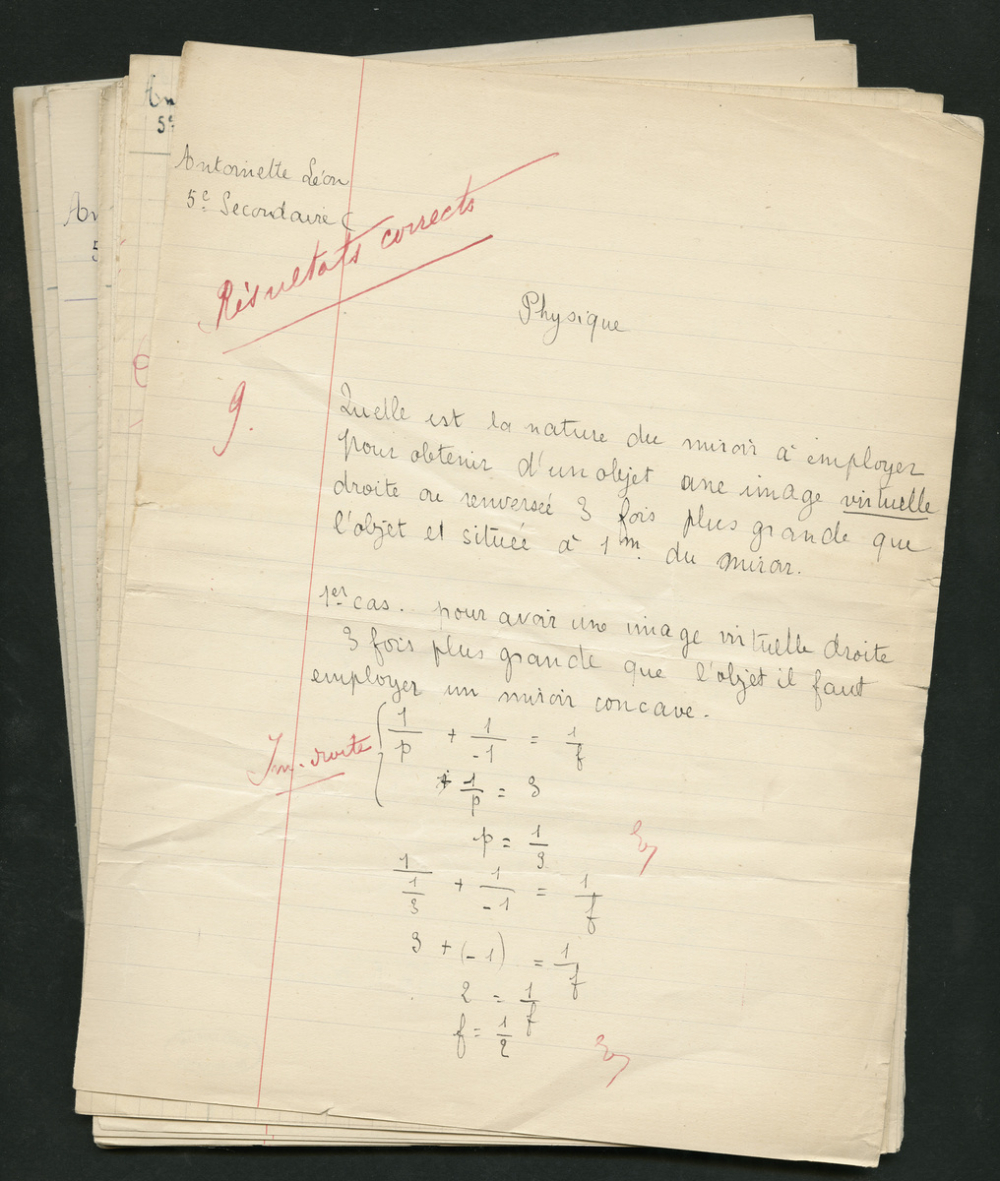 An
5e
An
5
Antoinette Léon
5e Secondaire C
Résultats corrects
Physique
9.
Quelle est la nature du miroir à employer
pour obtenir d'un objet une image virtuelle
droite ou renversée 3 fois plus grande que
l'objet et située à 1m. du miroir.
1er cas. pour avoir une image virtuelle droite
3 fois plus grande que l'objet il faut
employer un miroir concave.
Im. droite
1/p + 1/-1 = 1/f
+ 1/p = 3
p = 1/3
1/(1/3) + 1/-1 = 1/f
3 + (-1) = 1/f
2 = 1/f
f = 1/2